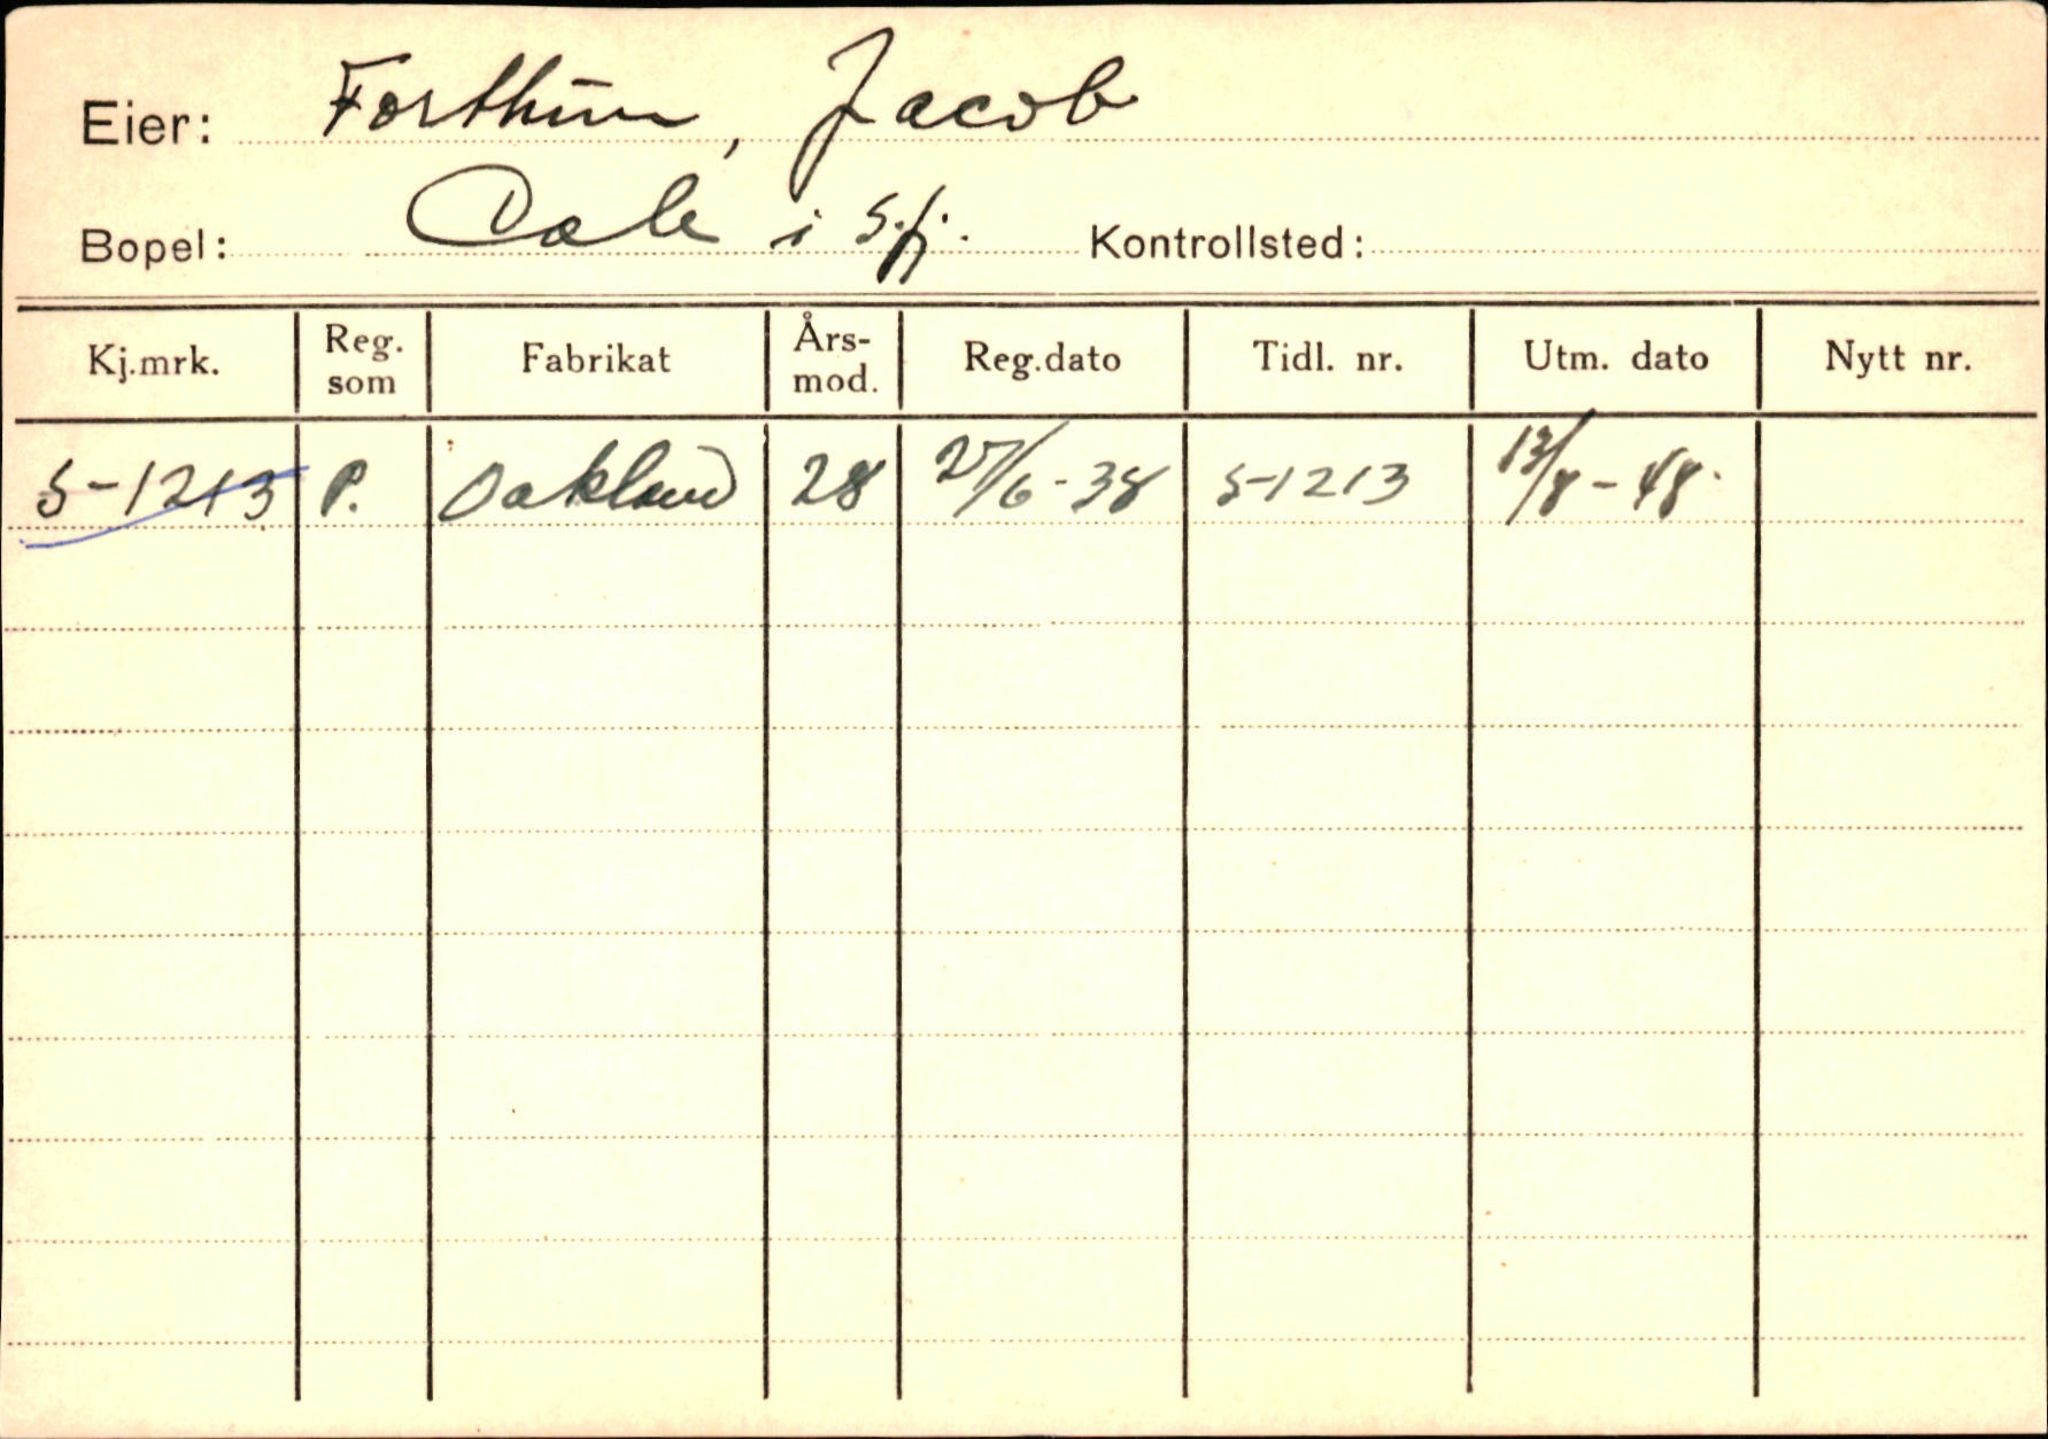 Eier: Forthun, Jacob
Bopel: Dale i S.fj. Kontrollsted:
Kj.mrk. Reg. som Fabrikat Års-mod. Reg.dato Tidl. nr. Utm. dato Nytt nr.
S-1213 P. Oakland 28 27/6-38 S-1213 13/8-48.